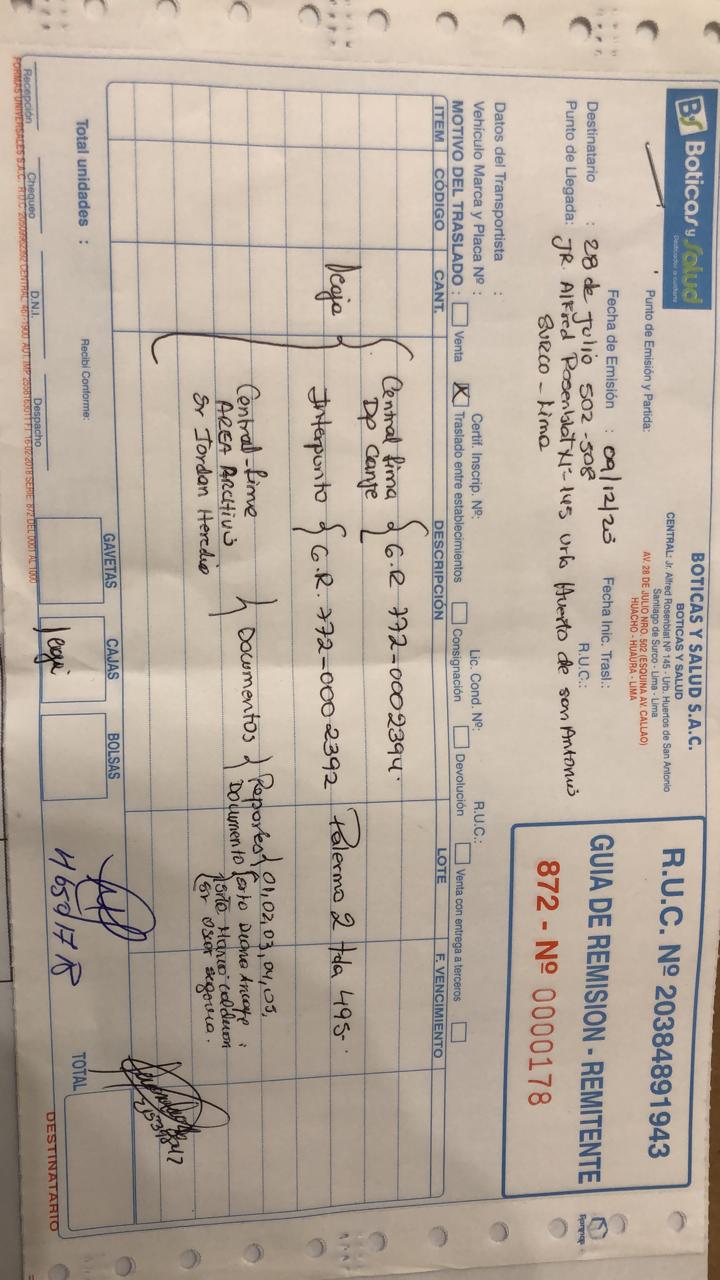 BS Boticas y Salud
Dedicados a cuidarte
BOTICAS Y SALUD S.A.C.
BOTICAS Y SALUD
CENTRAL: Jr. Alfred Rosenblat Nº 145 - Urb. Huertos de San Antonio
Santiago de Surco - Lima - Lima
AV. 28 DE JULIO NRO. 502 (ESQUINA AV. CALLAO)
HUACHO - HUAURA - LIMA
R.U.C. Nº 20384891943
GUIA DE REMISION - REMITENTE
872 - Nº 0000178
Punto de Emisión y Partida:
Fecha de Emisión : 09/12/23 Fecha Inic. Trasl.:
Destinatario : 28 de Julio 502-508 R.U.C.:
Punto de Llegada: JR. Alfred Rosenblat Nº 145 urb Huerto de san Antonio
SURCO - Lima
Datos del Transportista : R.U.C.:
Vehículo Marca y Placa Nº : Certif. Inscrip. Nº: Lic. Cond. Nº:
MOTIVO DEL TRASLADO : Venta X Traslado entre establecimientos Consignación Devolución Venta con entrega a terceros
ITEM CÓDIGO CANT. DESCRIPCIÓN LOTE F. VENCIMIENTO
Central Lima { G.R 772-0002394.
Dp Canje
1caja { Interpunto { G.R. 772-0002392 Palermo 2 tda 495.
Central-Lima } Documentos { Reportes { 01,02,03,04,05,
AREA Archivo Documento { srta Diana
Sr Jordan Heredia srta Maria calderon
Sr Oscar Segovia.
GAVETAS CAJAS BOLSAS
Total unidades : Recibí Conforme: 1caja TOTAL
Recepción Chequeo D.N.I. Despacho
DESTINATARIO